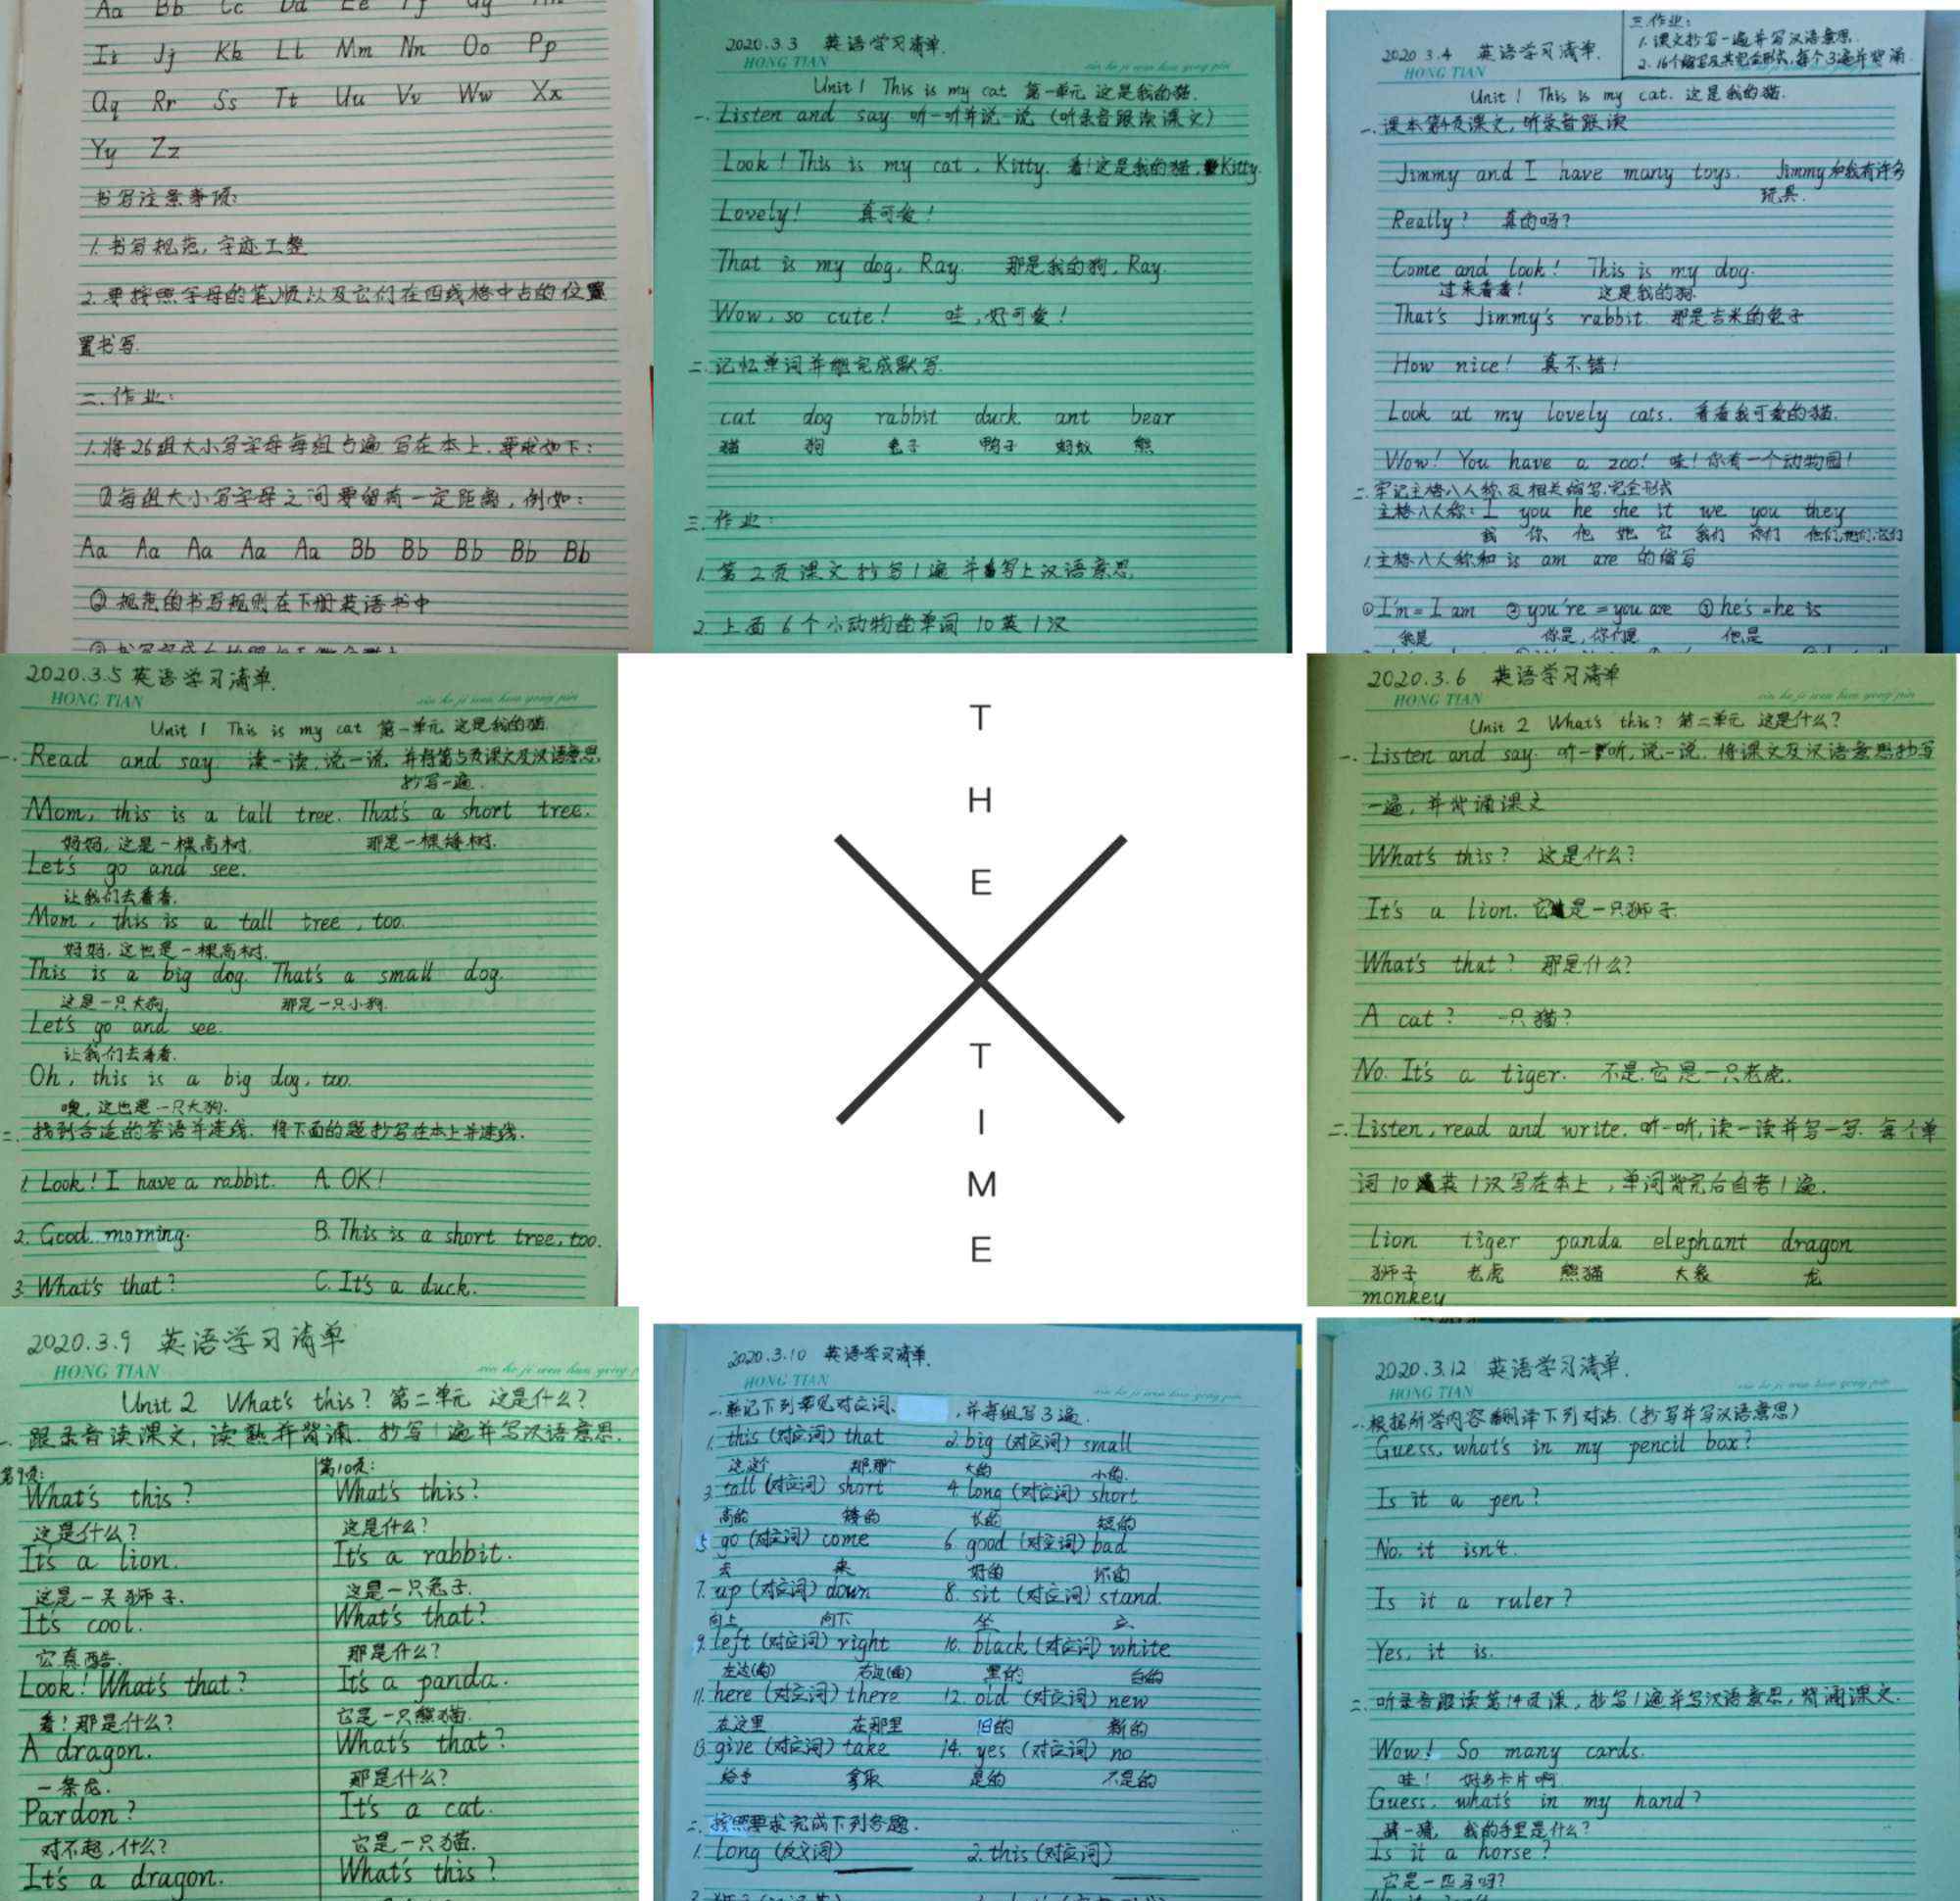 Aa Bb Cc Dd Ee Ff Gg Hh
Ii Jj Kk Ll Mm Nn Oo Pp
Qq Rr Ss Tt Uu Vv Ww Xx
Yy Zz
书写注意事项:
1.书写规范,字迹工整
2.要按照字母的笔顺以及它们在四线格中占的位置
置书写.
二.作业:
1.将26组大小写字母每组5遍写在本上.要求如下:
①每组大小写字母之间要留有一定距离,例如:
Aa Aa Aa Aa Aa Bb Bb Bb Bb Bb
②规范的书写规则在下册英语书中
2020.3.3 英语学习清单.
HONG TIAN
Unit 1 This is my cat 第一单元 这是我的猫.
一.Listen and say 听一听并说一说 (听录音跟读课文)
Look! This is my cat, Kitty. 看!这是我的猫,Kitty.
Lovely! 真可爱!
That is my dog, Ray. 那是我的狗,Ray.
Wow, so cute! 哇,好可爱!
二.记忆单词并能完成默写.
cat dog rabbit duck ant bear
猫 狗 兔子 鸭子 蚂蚁 熊
三.作业:
1.第2页课文抄写1遍并写上汉语意思.
2.上面6个小动物的单词10英1汉
三.作业:
1.课文抄写一遍并写汉语意思.
2.16个缩写及其完全形式,每个3遍并背诵
2020.3.4 英语学习清单.
HONG TIAN
Unit 1 This is my cat. 这是我的猫.
一.课本第4页课文,听录音跟读
Jimmy and I have many toys. Jimmy和我有许多
玩具.
Really? 真的吗?
Come and look! This is my dog.
过来看看! 这是我的狗.
That's Jimmy's rabbit 那是吉米的兔子
How nice! 真不错!
Look at my lovely cats. 看看我可爱的猫.
Wow! You have a zoo! 哇!你有一个动物园!
二.牢记主格八人称及相关缩写.完全形式
主格八人称: I you he she it we you they
我 你 他 她 它 我们 你们 他们,她们,它们
1.主格八人称和 is am are 的缩写
①I'm=I am ②you're=you are ③he's=he is
我是 你是,你们是 他是
2020.3.5 英语学习清单.
HONG TIAN
Unit 1 This is my cat 第一单元 这是我的猫.
一.Read and say 读一读,说一说 并将第5页课文及汉语意思
抄写一遍.
Mom, this is a tall tree. That's a short tree.
妈妈,这是一棵高树. 那是一棵矮树.
Let's go and see.
让我们去看看.
Mom, this is a tall tree, too.
妈妈,这也是一棵高树.
This is a big dog. That's a small dog.
这是一只大狗. 那是一只小狗.
Let's go and see.
让我们去看看.
Oh, this is a big dog, too.
噢,这也是一只大狗.
二.找到合适的答语并连线. 将下面的题抄写在本上并连线.
1.Look! I have a rabbit. A.OK!
2.Good morning. B.This is a short tree, too.
3.What's that? C.It's a duck.
T
H
E
T
I
M
E
2020.3.6 英语学习清单
HONG TIAN
Unit 2 What's this? 第二单元 这是什么?
一.Listen and say. 听一听,说一说. 将课文及汉语意思抄写
一遍,并背诵课文
What's this? 这是什么?
It's a lion. 它是一只狮子.
What's that? 那是什么?
A cat? 一只猫?
No. It's a tiger. 不是.它是一只老虎.
二.Listen, read and write. 听一听,读一读并写一写. 每个单
词10英1汉写在本上,单词背完后自考1遍.
lion tiger panda elephant dragon
狮子 老虎 熊猫 大象 龙
monkey
2020.3.9 英语学习清单
HONG TIAN
Unit 2 What's this? 第二单元 这是什么?
一.跟录音读课文,读熟并背诵. 抄写1遍并写汉语意思.
第9页:
What's this?
这是什么?
It's a lion.
这是一头狮子.
It's cool.
它真酷.
Look! What's that?
看!那是什么?
A dragon.
一条龙.
Pardon?
对不起,什么?
It's a dragon.
第10页:
What's this?
这是什么?
It's a rabbit.
这是一只兔子.
What's that?
那是什么?
It's a panda.
它是一只熊猫.
What's that?
那是什么?
It's a cat.
它是一只猫.
What's this?
2020.3.10 英语学习清单.
HONG TIAN
一.熟记下列常见对应词, ,并每组写3遍.
1.this (对应词) that 2.big (对应词) small
这,这个 那,那个 大的 小的.
3.tall (对应词) short 4.long (对应词) short
高的 矮的 长的 短的
5.go (对应词) come 6.good (对应词) bad
去 来 好的 坏的
7.up (对应词) down 8.sit (对应词) stand
向上 向下 坐 立
9.left (对应词) right 10.black (对应词) white
左边(的) 右边(的) 黑的 白的
11.here (对应词) there 12.old (对应词) new
在这里 在那里 旧的 新的
13.give (对应词) take 14.yes (对应词) no
给予 拿取 是的 不是的
二.按照要求完成下列各题.
1.long (反义词) 2.this (对应词)
2020.3.12 英语学习清单.
HONG TIAN
一.根据所学内容翻译下列对话.(抄写并写汉语意思)
Guess, what's in my pencil box?
Is it a pen?
No, it isn't.
Is it a ruler?
Yes, it is.
二.听录音跟读第14页课,抄写1遍并写汉语意思,背诵课文.
Wow! So many cards.
哇! 好多卡片啊.
Guess, what's in my hand?
猜一猜, 我的手里是什么?
Is it a horse?
它是一匹马吗?